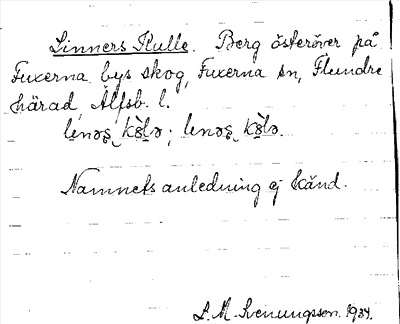 Linners Kulle. Berg österöver på
Fuxerna bys skog, Fuxerna sn, Flundre
härad, Älfsb. l.
Namnets anledning ej känd.
L. M. Svenungsson. 1934.